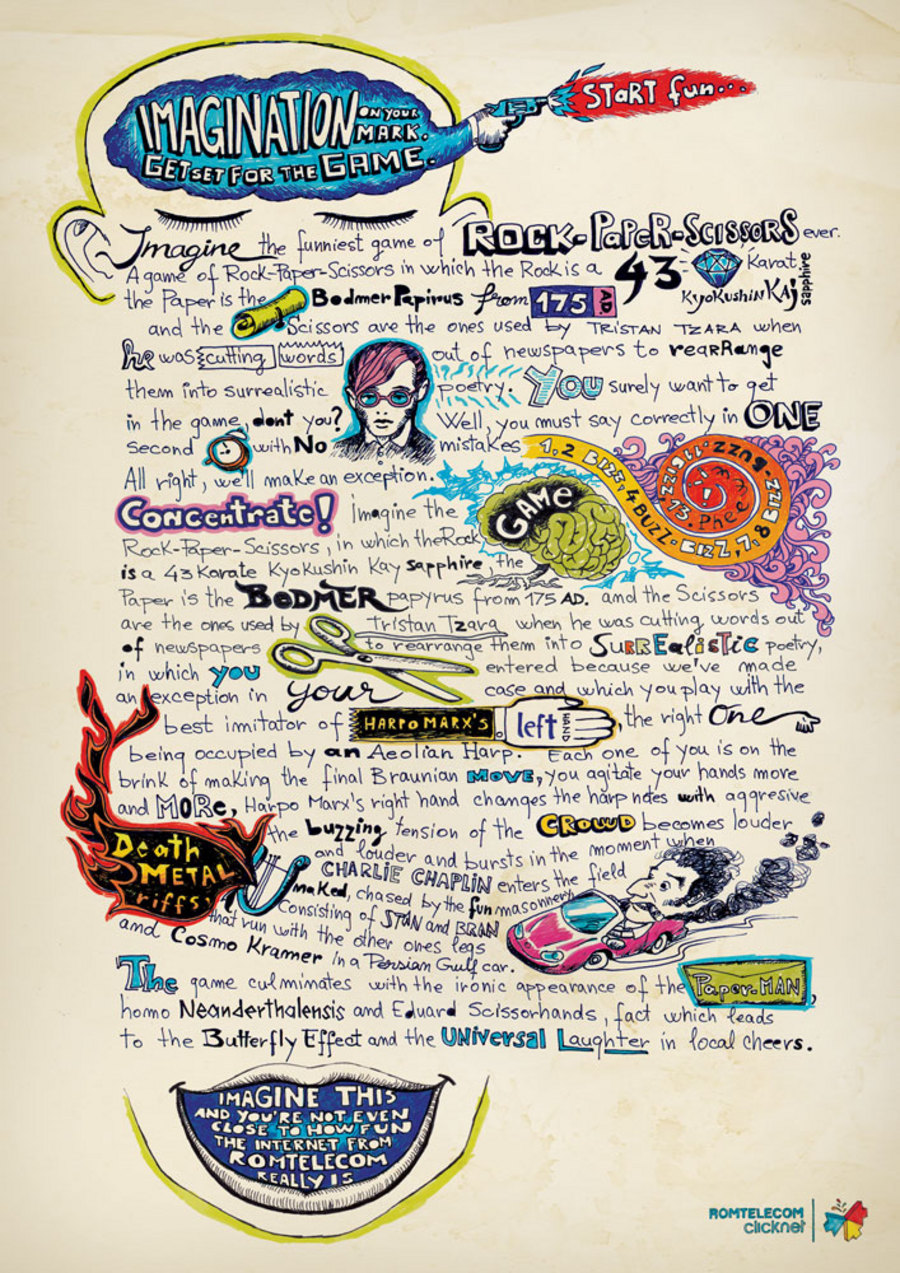 IMAGINATION ON YOUR MARK.
GET SET FOR THE GAME.
START fun...
Imagine the funniest game of ROCK-PaPeR-SCISSORS ever.
A game of Rock-Paper-Scissors in which the Rock is a 43 Karat
the Paper is the Bodmer Papirus from 175 AD KyoKushin KAj sapphire
and the Scissors are the ones used by TRISTAN TZARA when
he was cutting words out of newspapers to reaRRange
them into surrealistic poetry. YOU surely want to get
in the game, dont you? Well, you must say correctly in ONE
second with No mistakes 1, 2 BIZZ, 4 BUZZ. BIZZ, 7, 8 BIZZ BUZZ. 11 BIZZ 13. Phee!
All right, we'll make an exception.
Concentrate! Imagine the GAME
Rock-Paper-Scissors, in which the Rock
is a 43 Karate Kyokushin Kay sapphire, the
Paper is the BODMER papyrus from 175 AD. and the Scissors
are the ones used by Tristan Tzara when he was cutting words out
of newspapers to rearrange them into SuRREalisTiC poetry,
in which you entered because we've made
an exception in your case and which you play with the
best imitator of HARPO MARX'S left HAND, the right One
being occupied by an Aeolian Harp. Each one of you is on the
brink of making the final Braunian MOVE, you agitate your hands more
and MORe, Harpo Marx's right hand changes the harp notes with aggresive
Death METAL riffs, the buzzing tension of the CROWD becomes louder
and louder and bursts in the moment when
CHARLIE CHAPLIN enters the field
naked, chased by the fun masonnery
Consisting of STAN and BRAN
that run with the other ones legs
and Cosmo Kramer in a Persian Gulf car.
The game culminates with the ironic appearance of the Paper-MAN,
homo Neanderthalensis and Eduard Scissorhands, fact which leads
to the Butterfly Effect and the UNiversal Laughter in local cheers.
IMAGINE THIS
AND YOU'RE NOT EVEN
CLOSE TO HOW FUN
THE INTERNET FROM
ROMTELECOM
REALLY IS
ROMTELECOM
clicknet